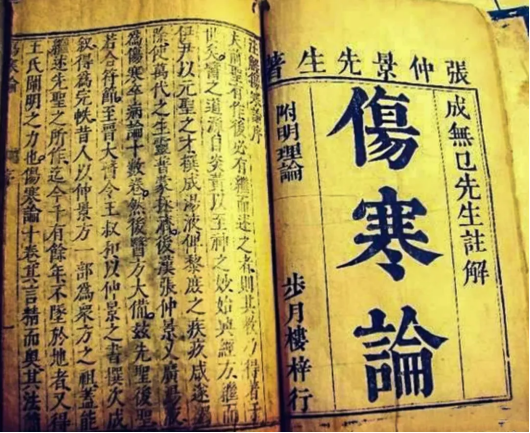 張仲景先生著
成無已先生註解
傷寒論
附明理論
步月樓梓行
註解傷寒論序
夫前聖有作後必有繼而述之者則其教乃得著于
世矣醫之道源自炎黃以至神之妙始興經方繼而
伊尹以元聖之才撰成湯液俾黎庶之疾疢咸遂蠲
除使萬代之生靈普蒙拯濟後漢張仲景又廣湯液
為傷寒卒病論十數卷然後醫方大備茲先聖後聖
若合符節至晉太醫令王叔和以仲景之書撰次成
叙得為完帙昔人以仲景方一部為衆方之祖蓋能
繼述先聖之所作迄今千有餘年不墜於地者又得
王氏闡明之力也傷寒論十卷其言精而奧其法簡
傷寒論